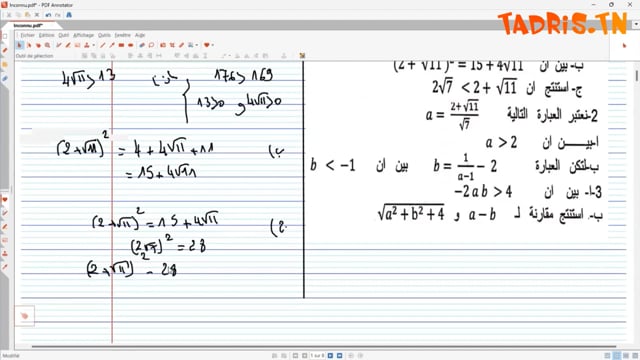 Inconnu.pdf* - PDF Annotator
TADRIS.TN
Fichier Edition Outil Affichage Outils Fenêtre Aide
Inconnu.pdf*
Outil de sélection
4√11 > 13
176 > 169
13>0 و 4√11>0
(2+√11)² = 4 + 4√11 + 11 (ب
= 15 + 4√11
(2+√11)² = 15 + 4√11 (ج
(2√7)² = 28
(2+√11)² - 28
ب- بين ان (2 + √11)² = 15 + 4√11
ج- استنتج ان 2√7 < 2 + √11
2-نعتبر العبارة التالية a = (2+√11)/√7
ا-بيـــن ان a > 2
ب-لتكن العبارة b = 1/(a-1) - 2 بين ان b < -1
3-ا- بين ان -2ab > 4
ب- استنتج مقارنة لـ a - b و √(a² + b² + 4)
1 sur 8